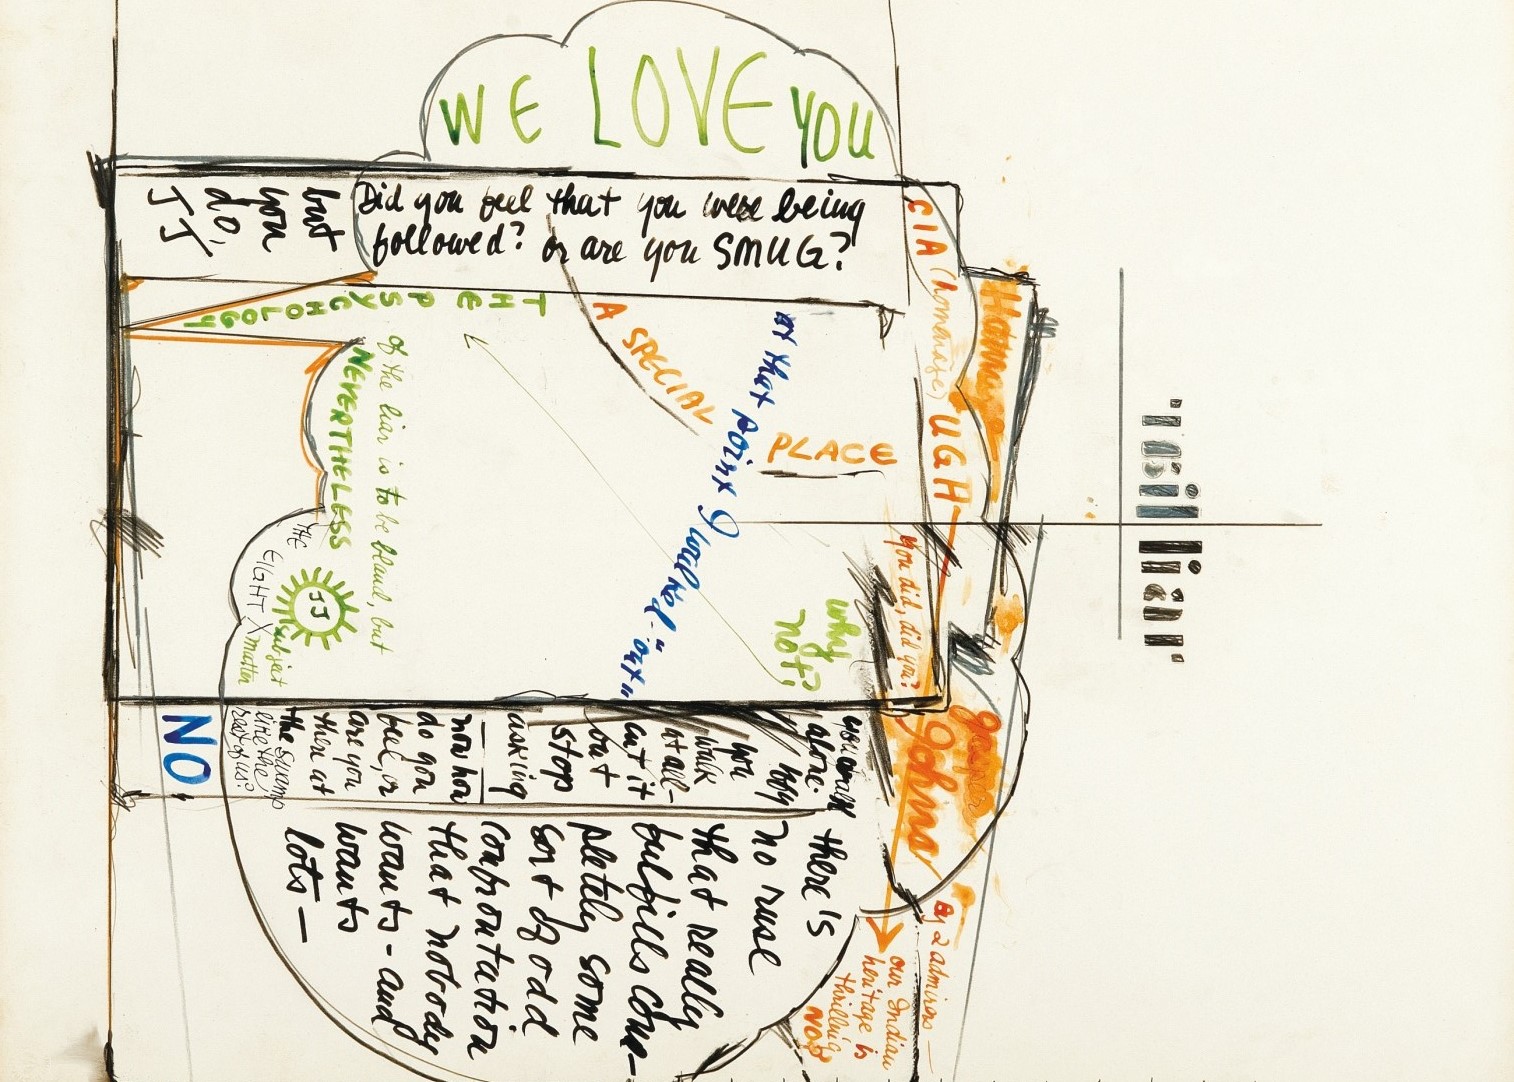 WE LOVE YOU
Did you feel that you were being
followed? or are you SMUG?
but
you
do,
JJ
THE PSYCHOLOGY
of the liar is to be bland, but
NEVERTHELESS
THE EIGHT X
subject
matter
JJ
A SPECIAL
PLACE
at that point I walked "out"
why
not?
CIA (homonage) UGH—
you did, did you?
Johns
by 2 admirers—
our Indian
heritage is
thrilling
NOT
liar
NO
alone.
you
walk
at all—
cut it
out
stop
asking
now how
do you
feel, or
are you
there at
the swamp
like the
rest of us?
there's
no ruse
that really
fulfills com-
pletely some
sort of odd
confrontation
that nobody
wants - and
wants
lots—